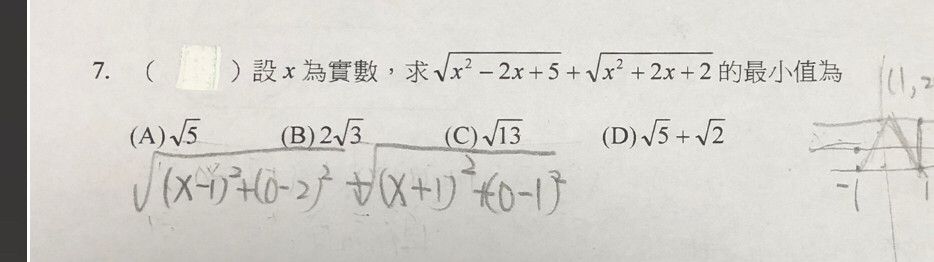 7. ( ) 設 x 為實數，求√(x² − 2x + 5) + √(x² + 2x + 2) 的最小值為
(A) √5 (B) 2√3 (C) √13 (D) √5 + √2
√((x-1)²+(0-2)²) + √((x+1)²+(0-1)²)
(1, 2
-1 1